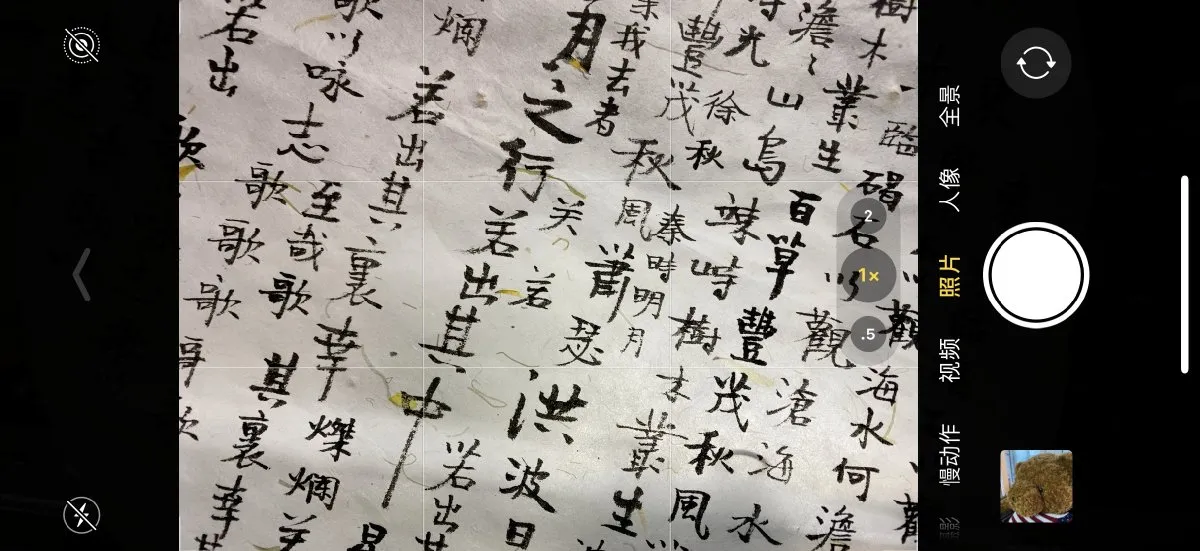 樹木叢生百草豐茂秋風
臨碣石以觀滄海水
觀海水何澹
澹山島竦峙樹木叢生
光徐秋
秦時明月
豐茂
我去者
秋風蕭瑟洪波日
月之行若出其中
关若
若出其
爛
若出其裏幸
燦爛
歌以咏志歌歌歌
至哉歌其裏幸其
若出
全景
人像
照片
视频
慢动作
2
1×
.5